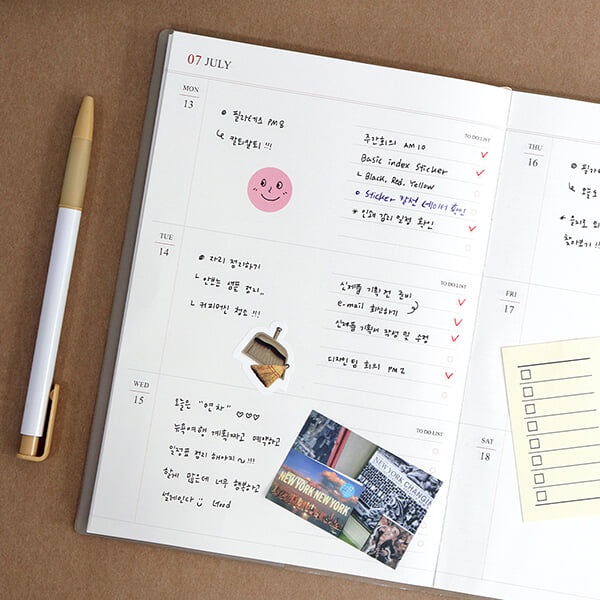 07 JULY
MON
13
필라테스 PM 8
칼퇴할퇴 !!!
TO DO LIST
주간회의 AM 10
Basic index sticker
ㄴ Black, Red, Yellow
sticker 칼선 데이터 확인
* 인쇄 감리 일정 확인
TUE
14
자리 정리하기
ㄴ 안쓰는 샘플 정리..
ㄴ 커피머신 청소 !!!
TO DO LIST
신제품 기획전 준비
e-mail 회신하기
신제품 기획서 작업 및 수정
디자인팀 회의 PM 2
WED
15
오늘은 "연차" ♡♡♡
뉴욕여행 계획짜고 예약하고
일정표 정리 해야지~ !!!
할게 많은데 너무 행복하고
설레인다 Good
TO DO LIST
NEW YORK NEW YORK
NEW YORK CHANG
THU
16
찾아보기 !!!
FRI
17
SAT
18